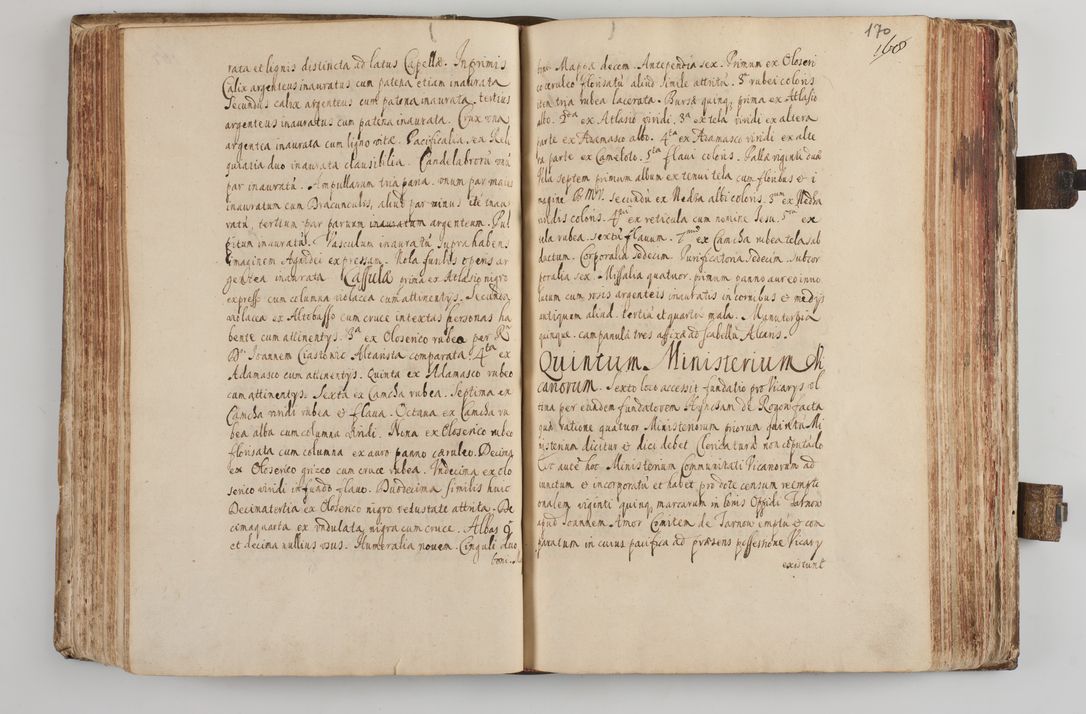 rata et lignis distincta ad latus Capellæ. Inprimis
Calix argenteus inauratus cum patena etiam inaurata
Secundus calix argenteus cum patena inaurata. tertius
argenteus inauratus cum patena inaurata. Crux una
argentea inaurata cum ligno vitæ. Pacificalia, ea Reli
quiaria duo inaurata clausibilia. Candelabrorũ unũ
par inauratũ. Ampullarum tria paria. unum par maius
inauratum cum Dracunculis, aliud par minus itẽ inau
ratũ, tertium par parum inauratum argenteum. Pul
pitum inauratũ. Vasculum inauratũ supra habens
imaginem Agni Dei expressam. Nola fusilis operis ar
gentea inaurata. Cassulæ prima ex Atlasio nigro
express cum columna violacea cum attinentys. Secunda
violacea ex Altobasso cum cruce intextas personas ha
bente cum attinentys. 3ª ex Oloserico rubeo per Rm
Dm Joannem Ciastonic Altaristã comparata. 4ta ex
Adamasco cum attinentys. Quinta ex Adamasco rubeo
cum attinentys. Sexta ex Camcha rubea. Septima ex
Camcha viridi rubea et flava. Octava ex Camcha ru
bea alba cum columna viridi. Nona ex Oloserico rubeo
florisata cum columna ex auro panno cæruleo. Decima
ex Oloserico grizeo cum cruce rubea. Undecima ex olo
serico viridi in fundo flavo. Duodecima similis huic
Decimatertia ex Oloserico nigro vetustate attrita. De
cimaquarta ex undulata nigra cum cruce. Albas
et decima nullius usus. Humeralia novem. Cinguli duo
bone.
170
168
Mappa decem. Antependia sex. Primum ex Oloseri
co cæruleo florisatũ aliud simile attritũ. 3m rubei coloris
item tria rubea lacerata. Bursæ quinq, prima ex Atlasio
albo. 2da ex Atlasio viridi. 3ª ex tela viridi ex altera
parte ex Adamasco albo. 4ta ex Adamasco viridi ex alte
ra parte ex Cameloto. 5ta flavi coloris. Pallæ viginti duæ
Vela septem primum album ex tenui tela cum floribus et i
magine B M V. secundũ ex Kedba albi coloris. 3um ex Kedba
viridis coloris. 4tum ex reticula cum nomine Jesu. 5tum ex
tela rubea. sextũ flavum. 7mum ex Camcha rubea tela sub
ductum. Corporalia sedecim. Purificatoria sedecim. Subcor
poralia sex. Missalia quatuor. primum panno aureo invo
lutum cum rosis argenteis inauratis in cornibus et medys
antiquum aliud. tertiũ et quartũ mala. Manutergia
quinque. campanula tres affixa ad scabellũ Altaris.
Quintum Ministerium Vi
canorum. Sexto loco accessit fundatio pro Vicarys ul
tima per eundem fundatorem Hynczam de Rogow facta
quæ ratione quatuor Ministeriorum priorum quintũ Mi
nisterium dicitur et dici debet Clericatura non cõputãdo
Est autẽ hoc Ministerium Communitati Vicanorum ad
iunctum et incorporatũ et habet pro dote censum reempti
onalem viginti quinq marcarum in bonis Oppidi Tarnow
apud Joannem Amor Comitem de Tarnow emptũ et com
paratum in cuius pacifica ad præsens possessione Vicary
existunt